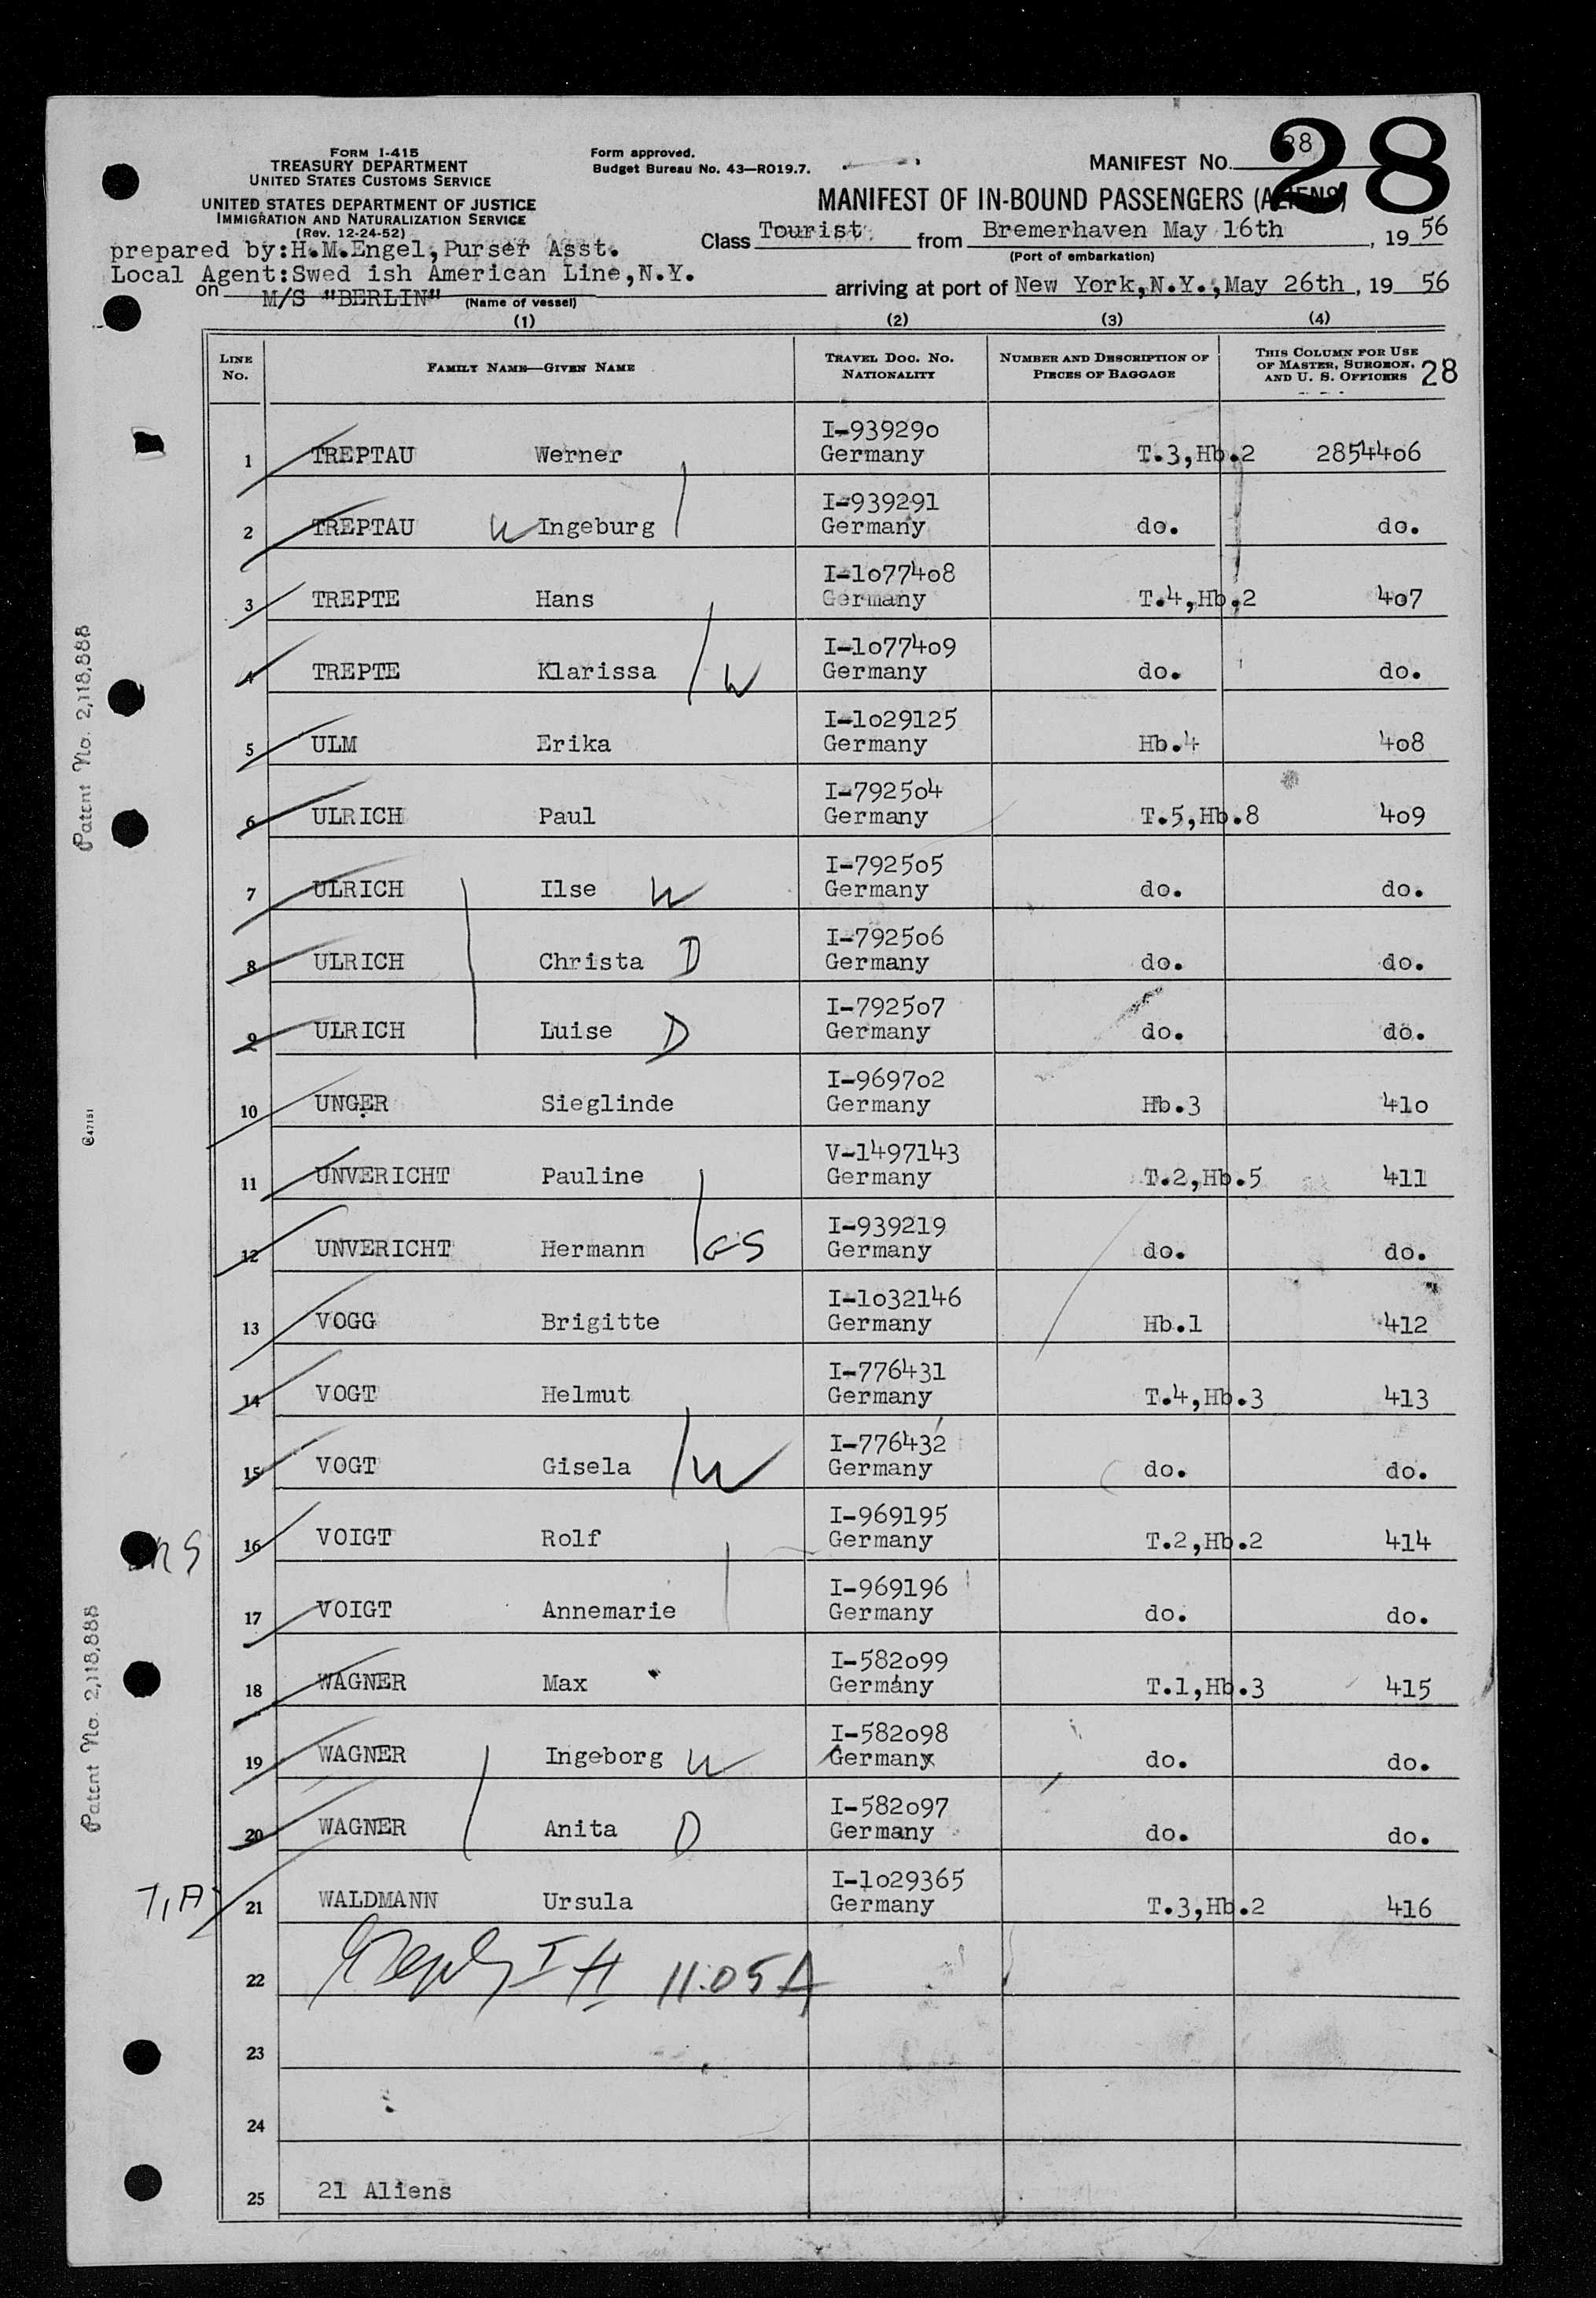 28
FORM I-415
TREASURY DEPARTMENT
UNITED STATES CUSTOMS SERVICE
UNITED STATES DEPARTMENT OF JUSTICE
IMMIGRATION AND NATURALIZATION SERVICE
(Rev. 12-24-52)
Form approved.
Budget Bureau No. 43—RO19.7.
MANIFEST NO.
MANIFEST OF IN-BOUND PASSENGERS (ALIENS)
prepared by:H.M.Engel,Purser Asst.
Local Agent:Swed ish American Line,N.Y.
Class Tourist from Bremerhaven May 16th, 19 56
(Port of embarkation)
on M/S "BERLIN" (Name of vessel) arriving at port of New York,N.Y.,May 26th, 19 56
(1) (2) (3) (4)
LINE No. FAMILY NAME—GIVEN NAME TRAVEL DOC. NO. NATIONALITY NUMBER AND DESCRIPTION OF PIECES OF BAGGAGE THIS COLUMN FOR USE OF MASTER, SURGEON, AND U. S. OFFICERS 28
I-939290
1 TREPTAU Werner Germany T.3,Hb.2 2854406
I-939291
2 TREPTAU W Ingeburg Germany do. do.
I-1077408
3 TREPTE Hans Germany T.4,Hb.2 407
I-1077409
4 TREPTE Klarissa W Germany do. do.
I-1029125
5 ULM Erika Germany Hb.4 408
I-792504
6 ULRICH Paul Germany T.5,Hb.8 409
I-792505
7 ULRICH Ilse W Germany do. do.
I-792506
8 ULRICH Christa D Germany do. do.
I-792507
9 ULRICH Luise D Germany do. do.
I-969702
10 UNGER Sieglinde Germany Hb.3 410
V-1497143
11 UNVERICHT Pauline Germany T.2,Hb.5 411
I-939219
12 UNVERICHT Hermann GS Germany do. do.
I-1032146
13 VOGG Brigitte Germany Hb.1 412
I-776431
14 VOGT Helmut Germany T.4,Hb.3 413
I-776432
15 VOGT Gisela W Germany do. do.
I-969195
16 VOIGT Rolf Germany T.2,Hb.2 414
I-969196
17 VOIGT Annemarie Germany do. do.
I-582099
18 WAGNER Max Germany T.1,Hb.3 415
I-582098
19 WAGNER Ingeborg W Germany do. do.
I-582097
20 WAGNER Anita D Germany do. do.
I-1029365
21 WALDMANN Ursula Germany T.3,Hb.2 416
22 11:05A
23
24
25 21 Aliens
Patent No. 2,118,888
Patent No. 2,118,888